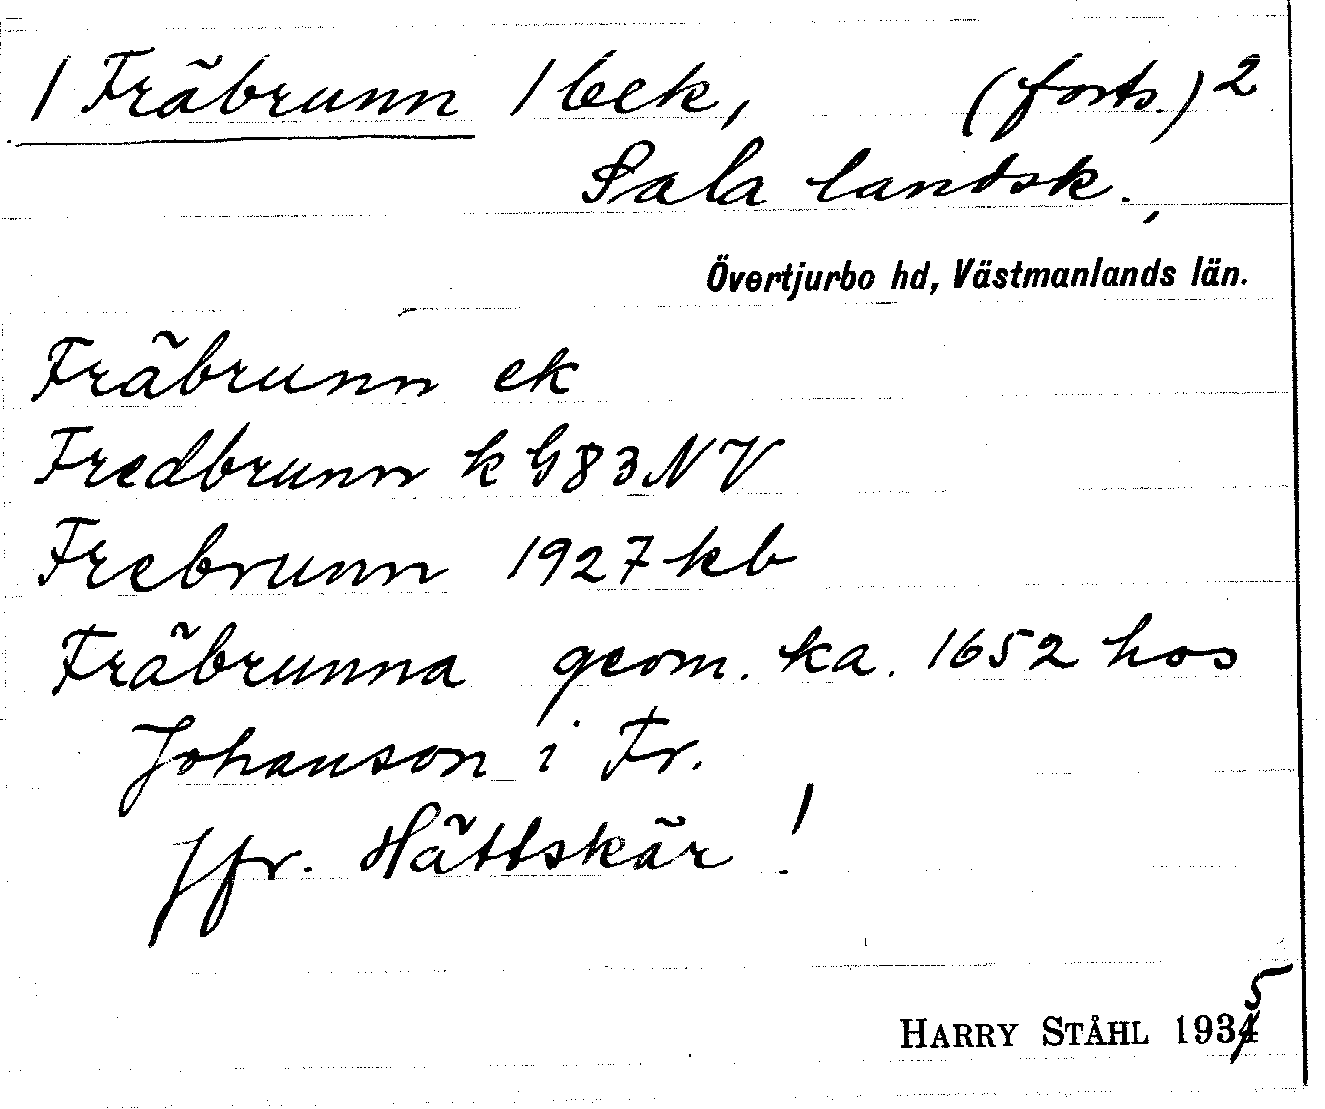 / Fräbrunn / bek, (forts.) 2
Sala landsk.,
Övertjurbo hd, Västmanlands län.
Fräbrunn ek
Fredbrunn k G83NV
Frebrunn 1927 kb
Fräbrunna geom. ka. 1652 hos
Johanson i Fr.
Jfr. Hättskär !
HARRY STÅHL 1935